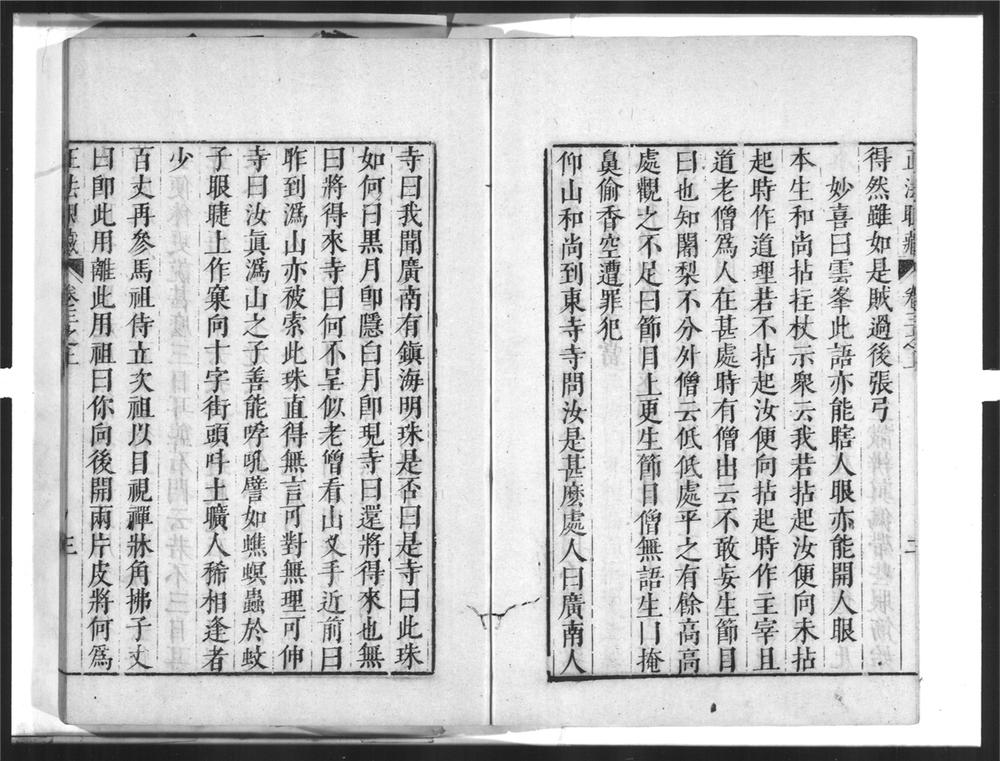 得然雖如是賊過後張弓
妙喜曰雲峯此語亦能瞎人眼亦能開人眼
本生和尚拈拄杖示衆云我若拈起汝便向未拈
起時作道理若不拈起汝便向拈起時作主宰且
道老僧爲人在甚處時有僧出云不敢妄生節目
曰也知闍梨不分外僧云低低處平之有餘高高
處觀之不足曰節目上更生節目僧無語生曰掩
鼻偷香空遭罪犯
仰山和尚到東寺寺問汝是甚麽處人曰廣南人
寺曰我聞廣南有鎭海明珠是否曰是寺曰此珠
如何曰黒月卽隱白月卽現寺曰還將得來也無
曰將得來寺曰何不呈似老僧看山叉手近前曰
昨到潙山亦被索此珠直得無言可對無理可伸
寺曰汝眞潙山之子善能哮吼譬如蟭螟蟲於蚊
子眼睫上作窠向十字街頭呌土曠人稀相逢者
少
百丈再參馬祖侍立次祖以目視禪牀角拂子丈
曰卽此用離此用祖曰你向後開兩片皮將何爲
正法眼藏 卷三之上 三